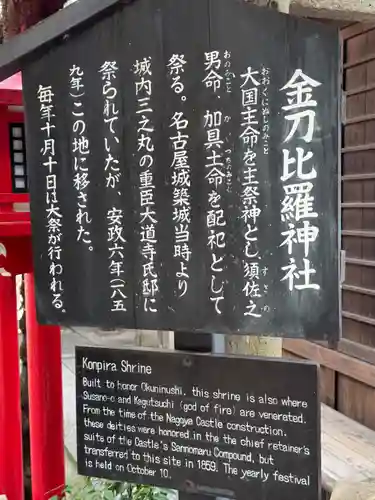 金刀比羅神社
おおくにぬしのみこと すさの
大国主命を主祭神とし須佐之
おのみこと つちのみこと
男命、加具土命を配祀として
祭る。名古屋城築城当時より
城内三之丸の重臣大道寺氏邸に
祭られていたが、安政六年（一八五
九年）この地に移された。
毎年十月十日は大祭が行われる。
Konpira Shrine
Built to honor Okuninushi, this shrine is also where
Susano-o and Kagutsuchi (god of fire) are venerated.
From the time of the Nagoya Castle construction,
these deities were honored in the the chief retainer's
suite of the Castle's Sannomaru Compound, but
transferred to this site in 1859. The yearly festival
is held on October 10.